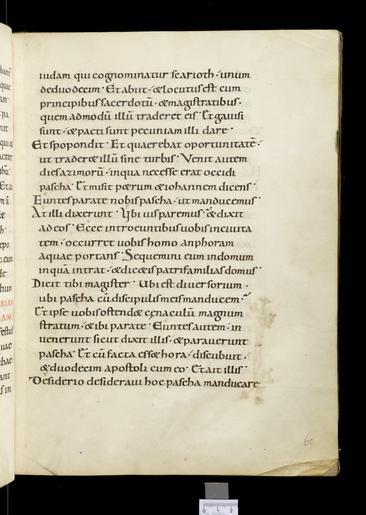 iudam qui cognominatur scarioth · unum
deduodecim · Et abiit · & locutus est cum
principibus sacerdotū · & magistratibus ·
quem admodū illū traderet eis · Et gauisi
sunt · & pacti sunt pecuniam illi dare ·
Et spopondit · Et quaerebat oportunitatē ·
ut trader& illū sine turbis · Venit autem
dies azimorū · in qua necesse erat occidi
pascha · Et misit petrum & iohannem dicens ·
Euntes parate nobis pascha · ut manducemus ·
At illi dixerunt · Ubi uis paremus · & dixit
ad eos · Ecce introeuntibus uobis inciuita
tem · occurret uobis homo amphoram
aquae portans · Sequemini eum indomum
in quā intrat · & dicetis patrifamilias domus ·
Dicit tibi magister · Ubi est diuersorium ·
ubi pascha cū discipulis meis manducem ·
Et ipse uobis ostend& cenaculū magnum
stratum · & ibi parate · Euntes autem · in
uenerunt sicut dixit illis · & parauerunt
pascha · Et cū facta ess& hora · discubuit ·
& duodecim apostoli cum eo · Et ait illis ·
Desiderio desideraui hoc pascha manducare
60